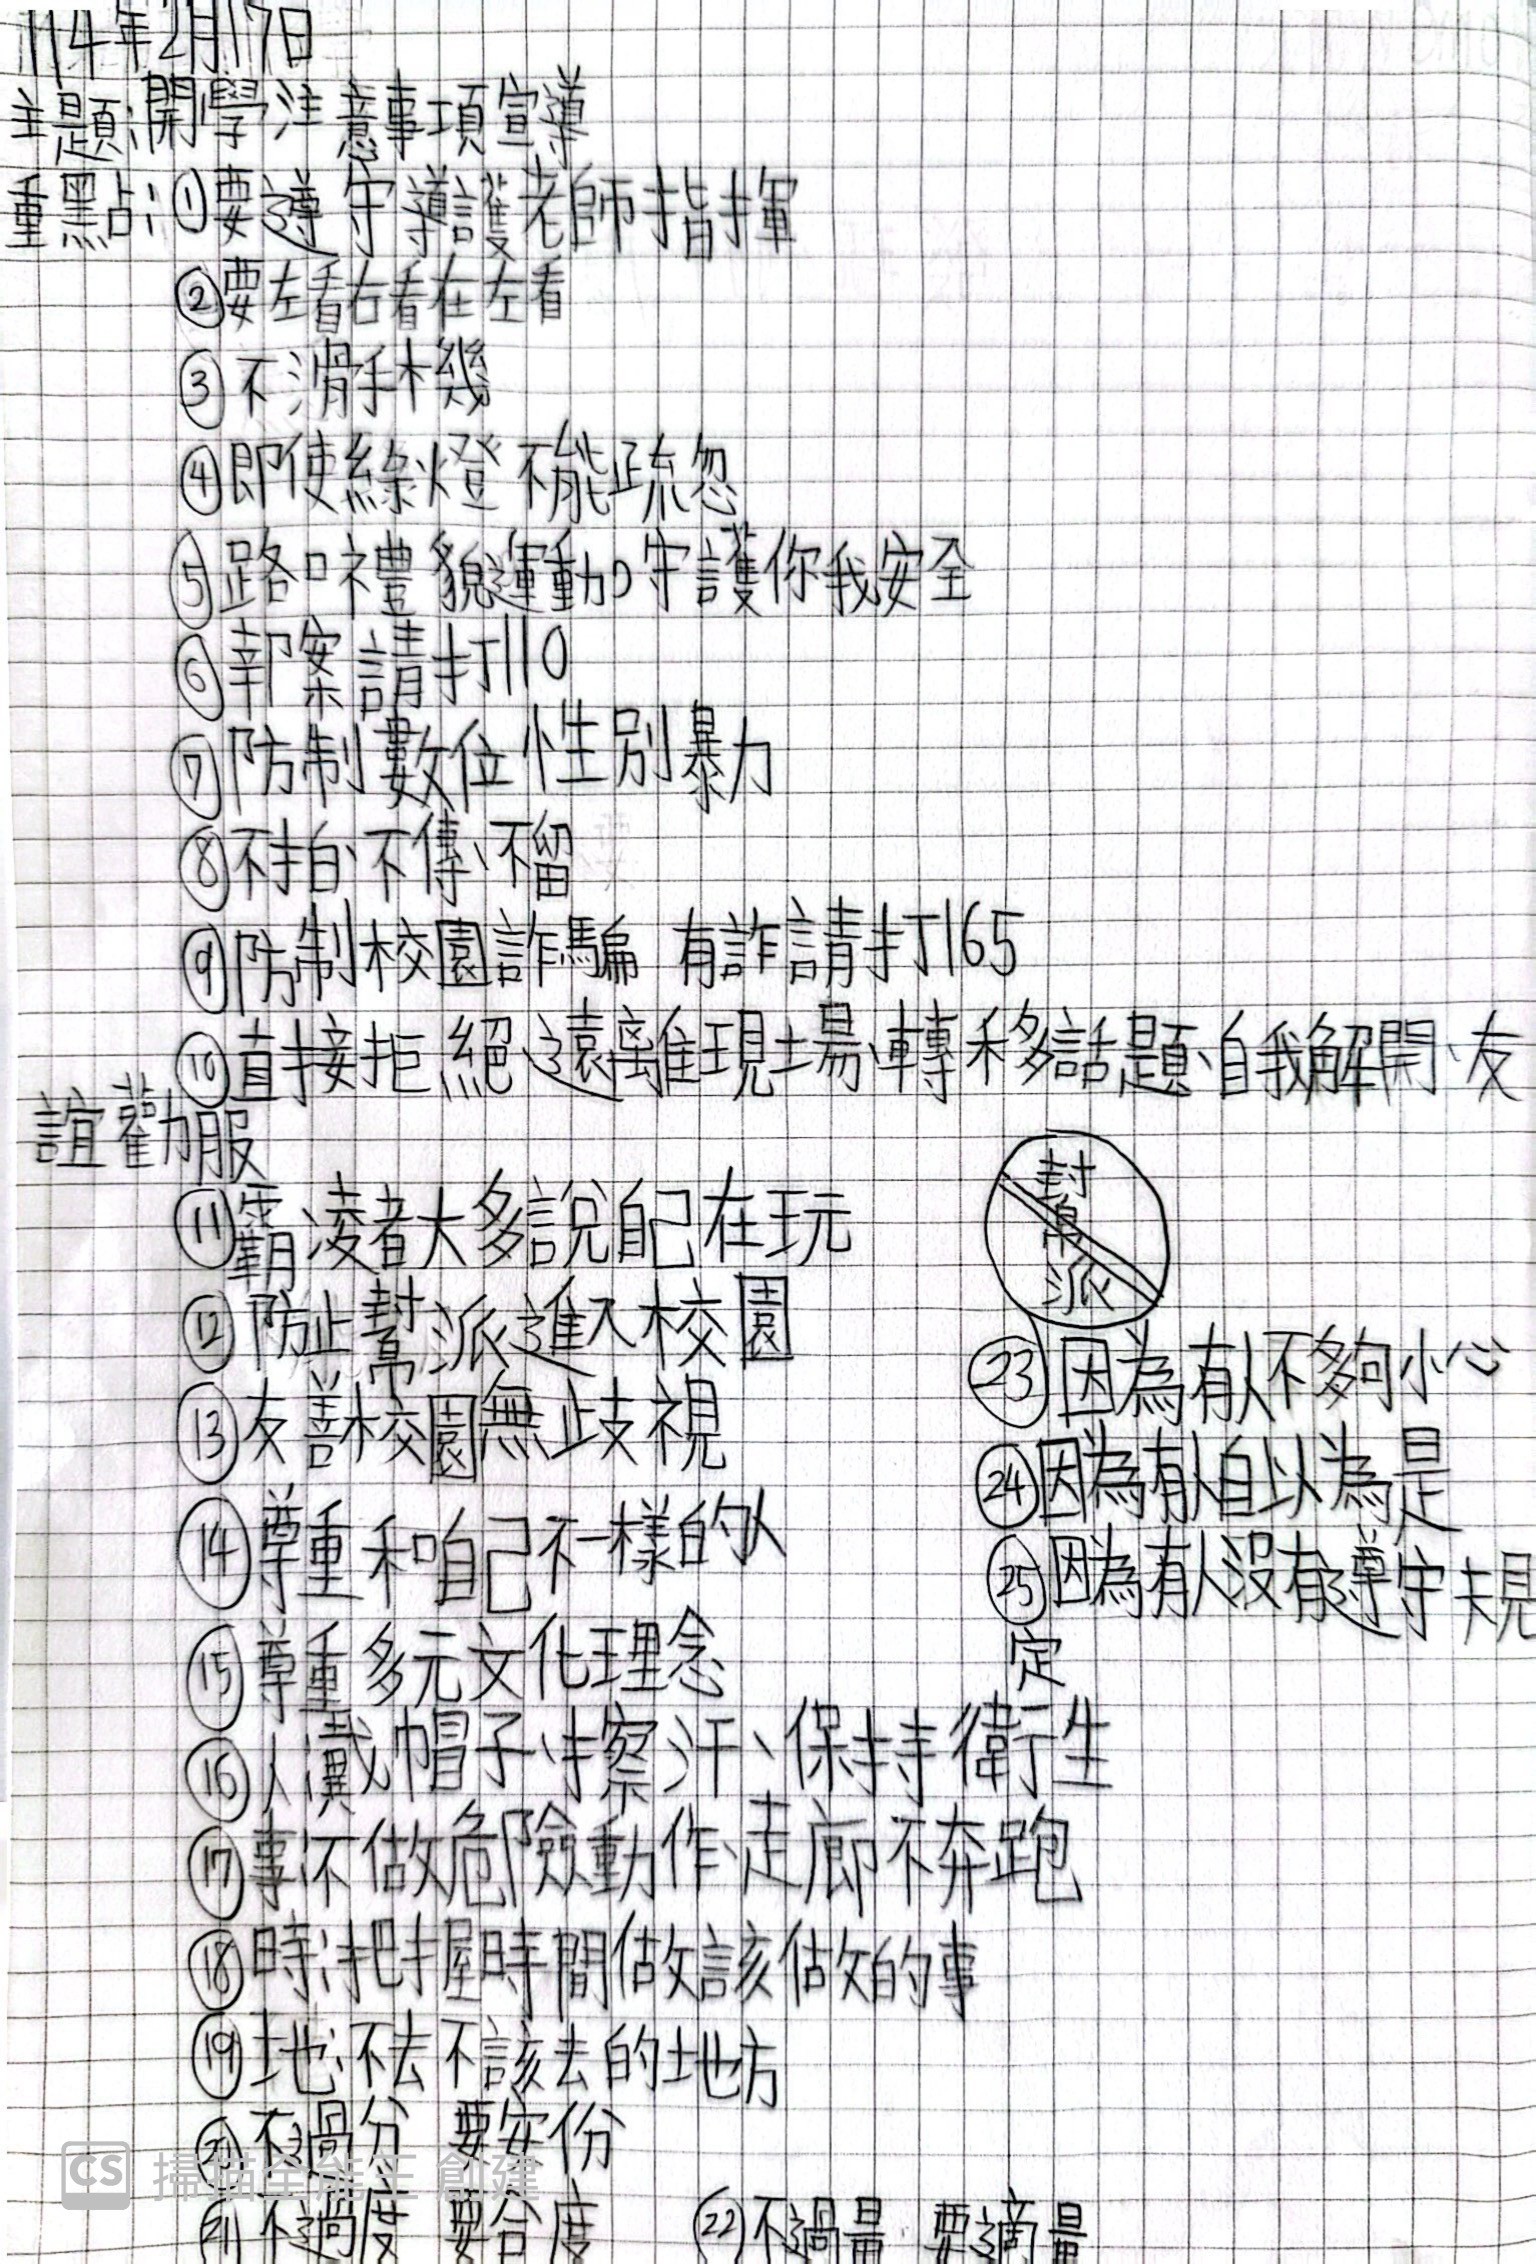 114年2月17日
主題:開學注意事項宣導
重點:①要遵守導護老師指揮
②要左看右看在左看
③不滑手機
④即使綠燈 不能疏忽
⑤路口禮貌運動 守護你我安全
⑥報案請打110
⑦防制數位性別暴力
⑧不拍、不傳、不留
⑨防制校園詐騙 有詐請打165
⑩直接拒絕、遠離現場、轉移話題、自我解開、友
誼勸服
⑪霸凌者大多說自己在玩
⑫防止幫派進入校園
⑬友善校園無歧視
⑭尊重和自己不一樣的人
⑮尊重多元文化理念
⑯人:戴帽子、擦汗、保持衛生
⑰事:不做危險動作、走廊不奔跑
⑱時:把握時間做該做的事
⑲地:不去不該去的地方
⑳不過分 要安份
㉑不過度 要合度
㉒不過量 要適量
幫派
㉓因為有人不夠小心
㉔因為有人自以為是
㉕因為有人沒有遵守規
定
CS 掃描全能王 創建